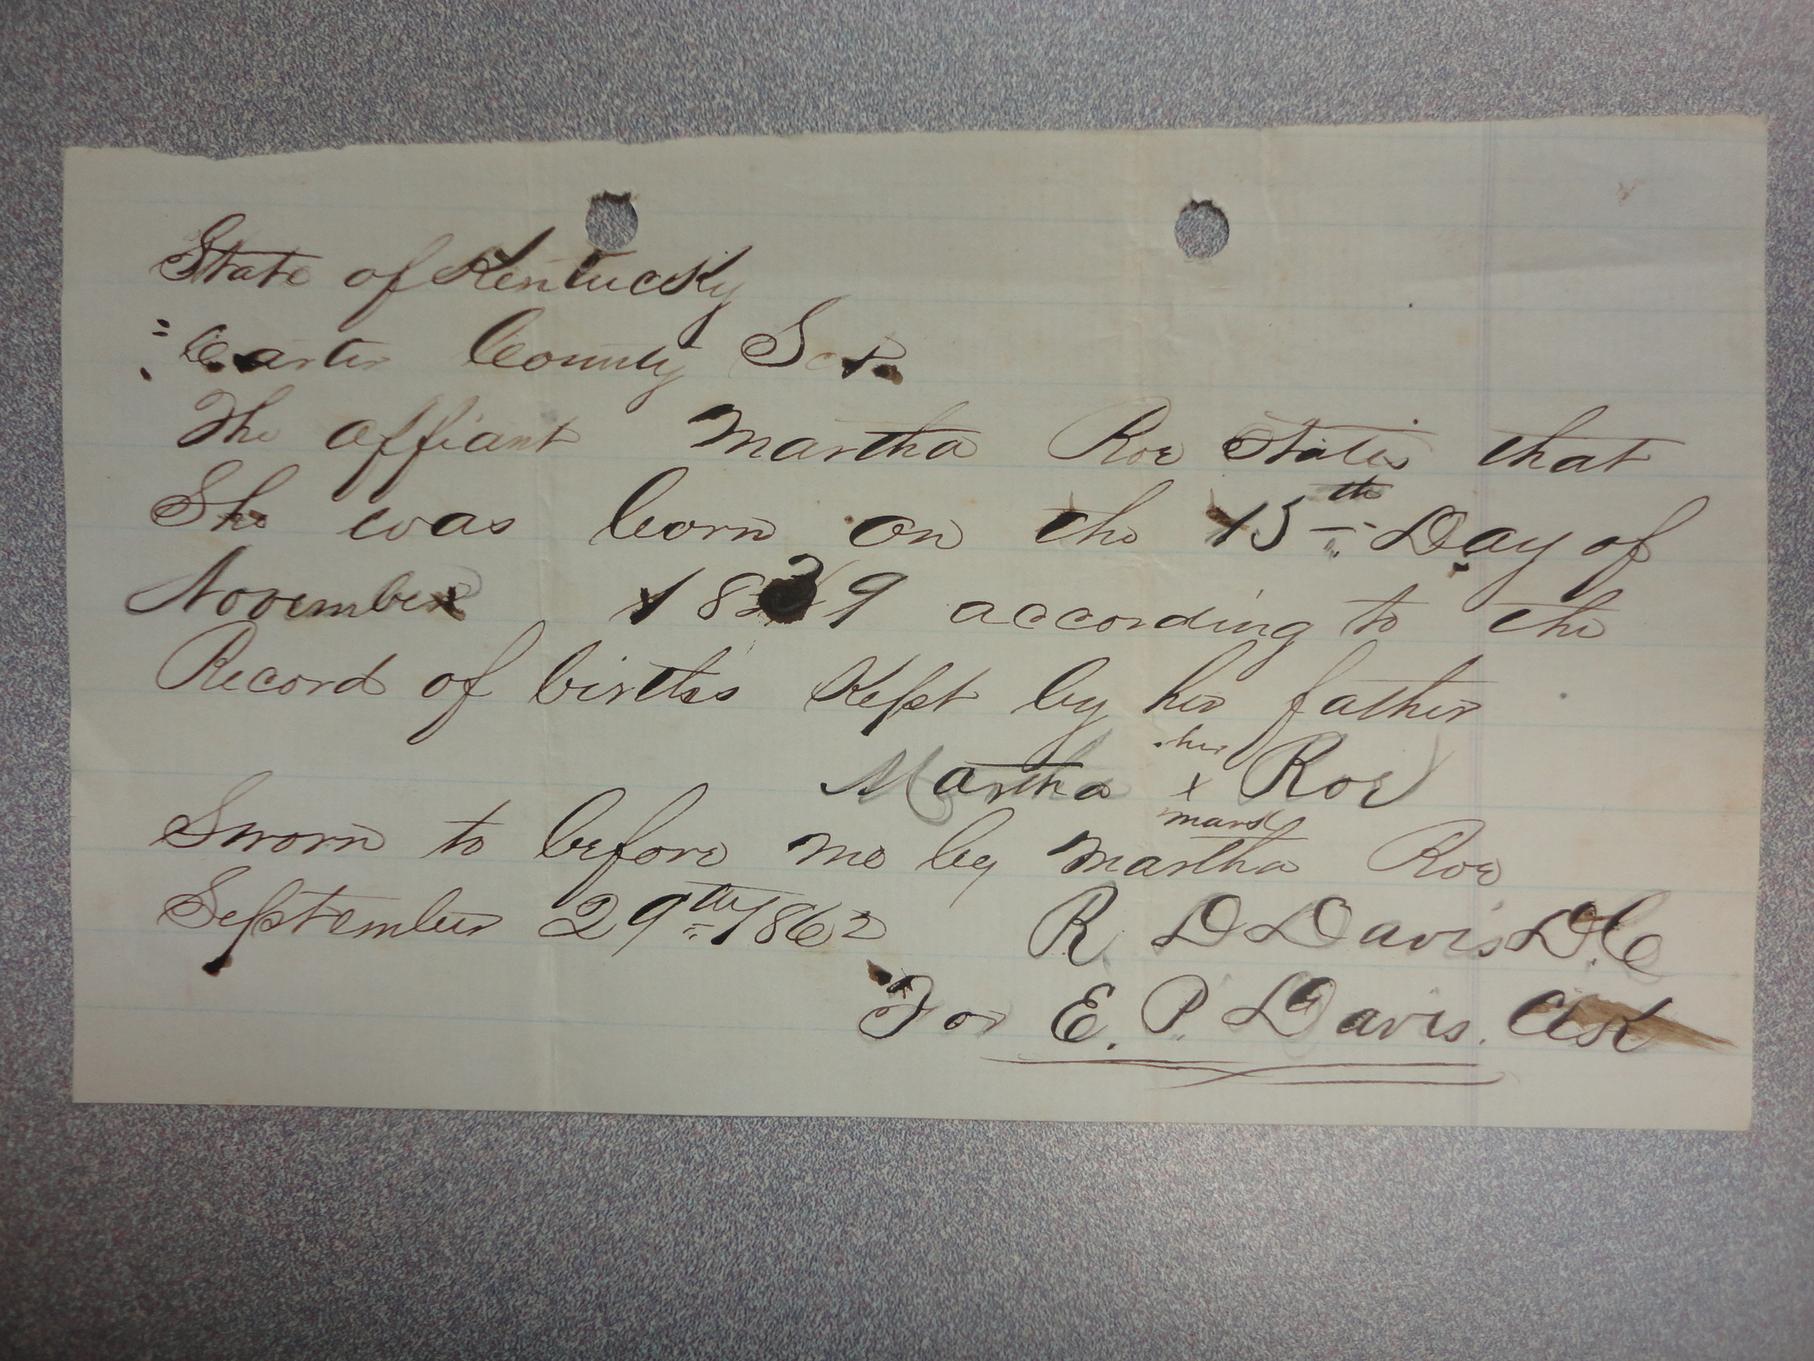 State of Kentucky
Carter County Sct.
The affiant Martha Roe States that
She was born on the 15th Day of
November 1839 according to the
Record of births Kept by her father
Martha her x mark Roe
Sworn to before me by Martha Roe
September 29th 1862 R. D Davis D.C
For E. P. Davis. Clk